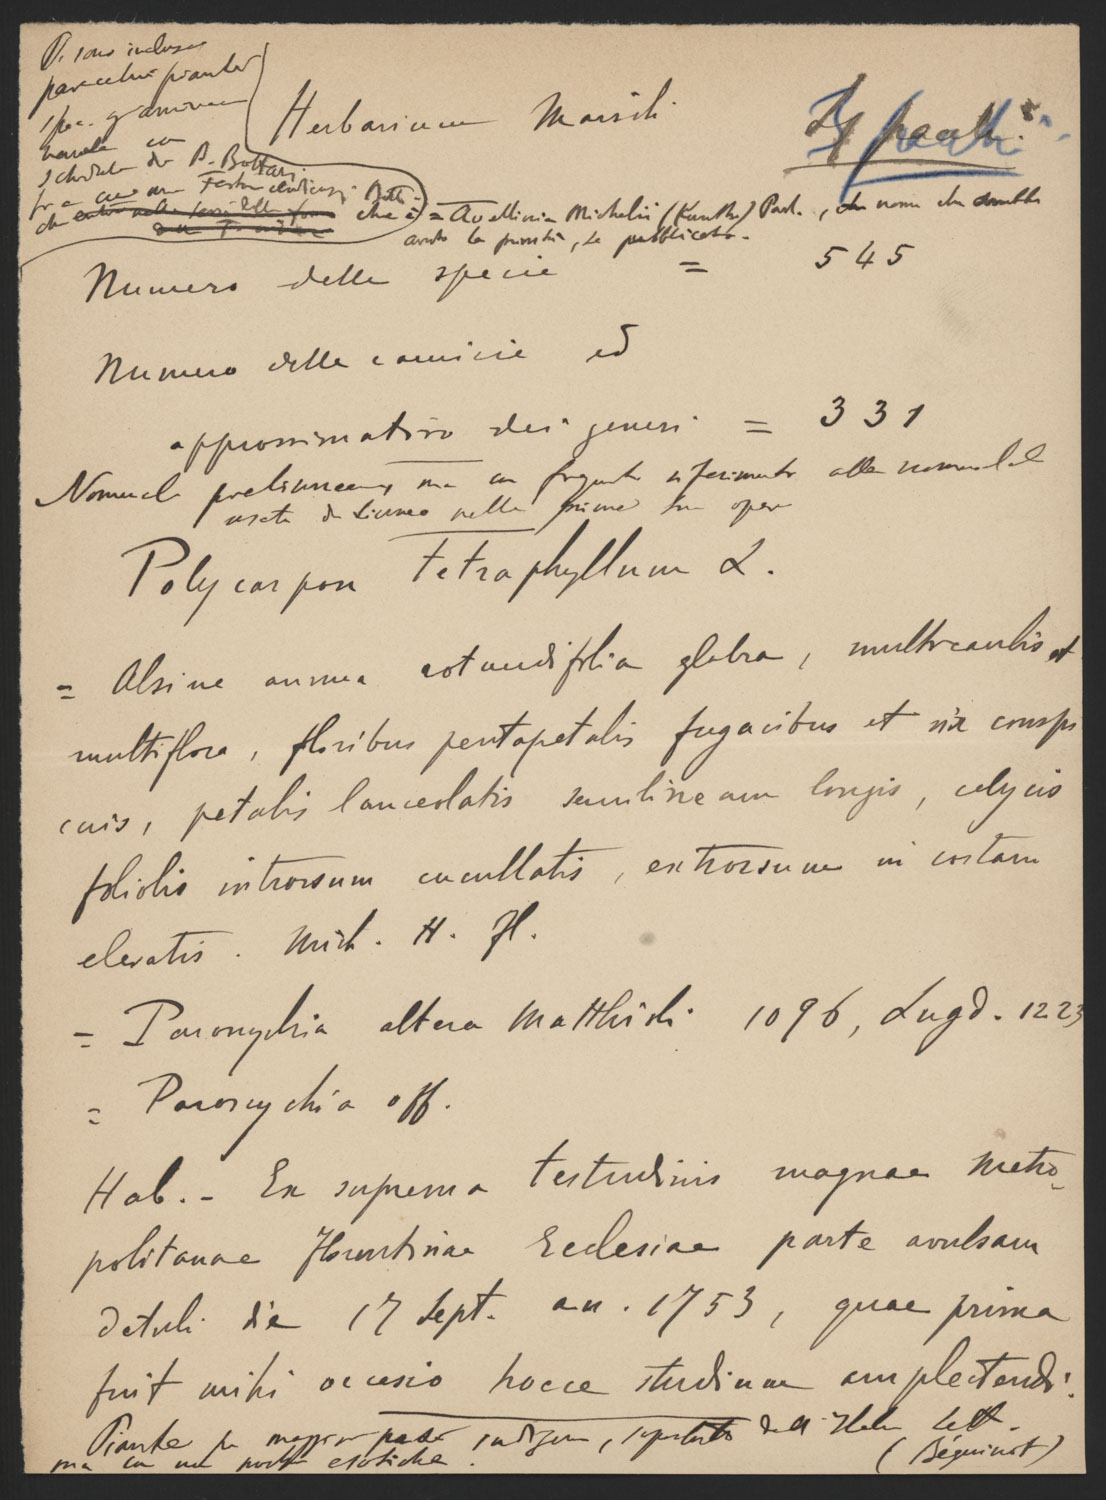 Vi sono incluse
parecchie piante
spec. graminacee
varie con
schedule di A. Bottari
fra cui una Festuca
che
Herbarium Marsili
che è = Avellinia Michelii (Kunth) Parl., che
avuto la priorità, se pubblicato.
Numero delle specie = 545
Numero delle camicie ed
approssimativo dei generi = 331
Nomencl. prelinneana, ma con frequente riferimento alla nomencl.
usata da Linneo nelle prime sue opere
Polycarpon tetraphyllum L.
= Alsine annua rotundifolia glabra, multicaulis et
multiflora, floribus pentapetalis fugacibus et vix conspi
cuis, petalis lanceolatis semilineam longis, calycis
foliolis introrsum cucullatis, extrorsum in costam
elevatis. Mich. H. Fl.
= Paronychia altera Matthioli 1096, Lugd. 1223
= Paronychia off.
Hab. - Ex suprema testudinis magnae Metro-
politanae Florentinae Ecclesiae parte avulsam
detuli die 17 Sept. an. 1753, quae prima
fuit mihi occasio hocce studium amplectendi.
Piante per maggior parte indigene, dell'Italia sett.
ma con non poche esotiche. (Béguinot)